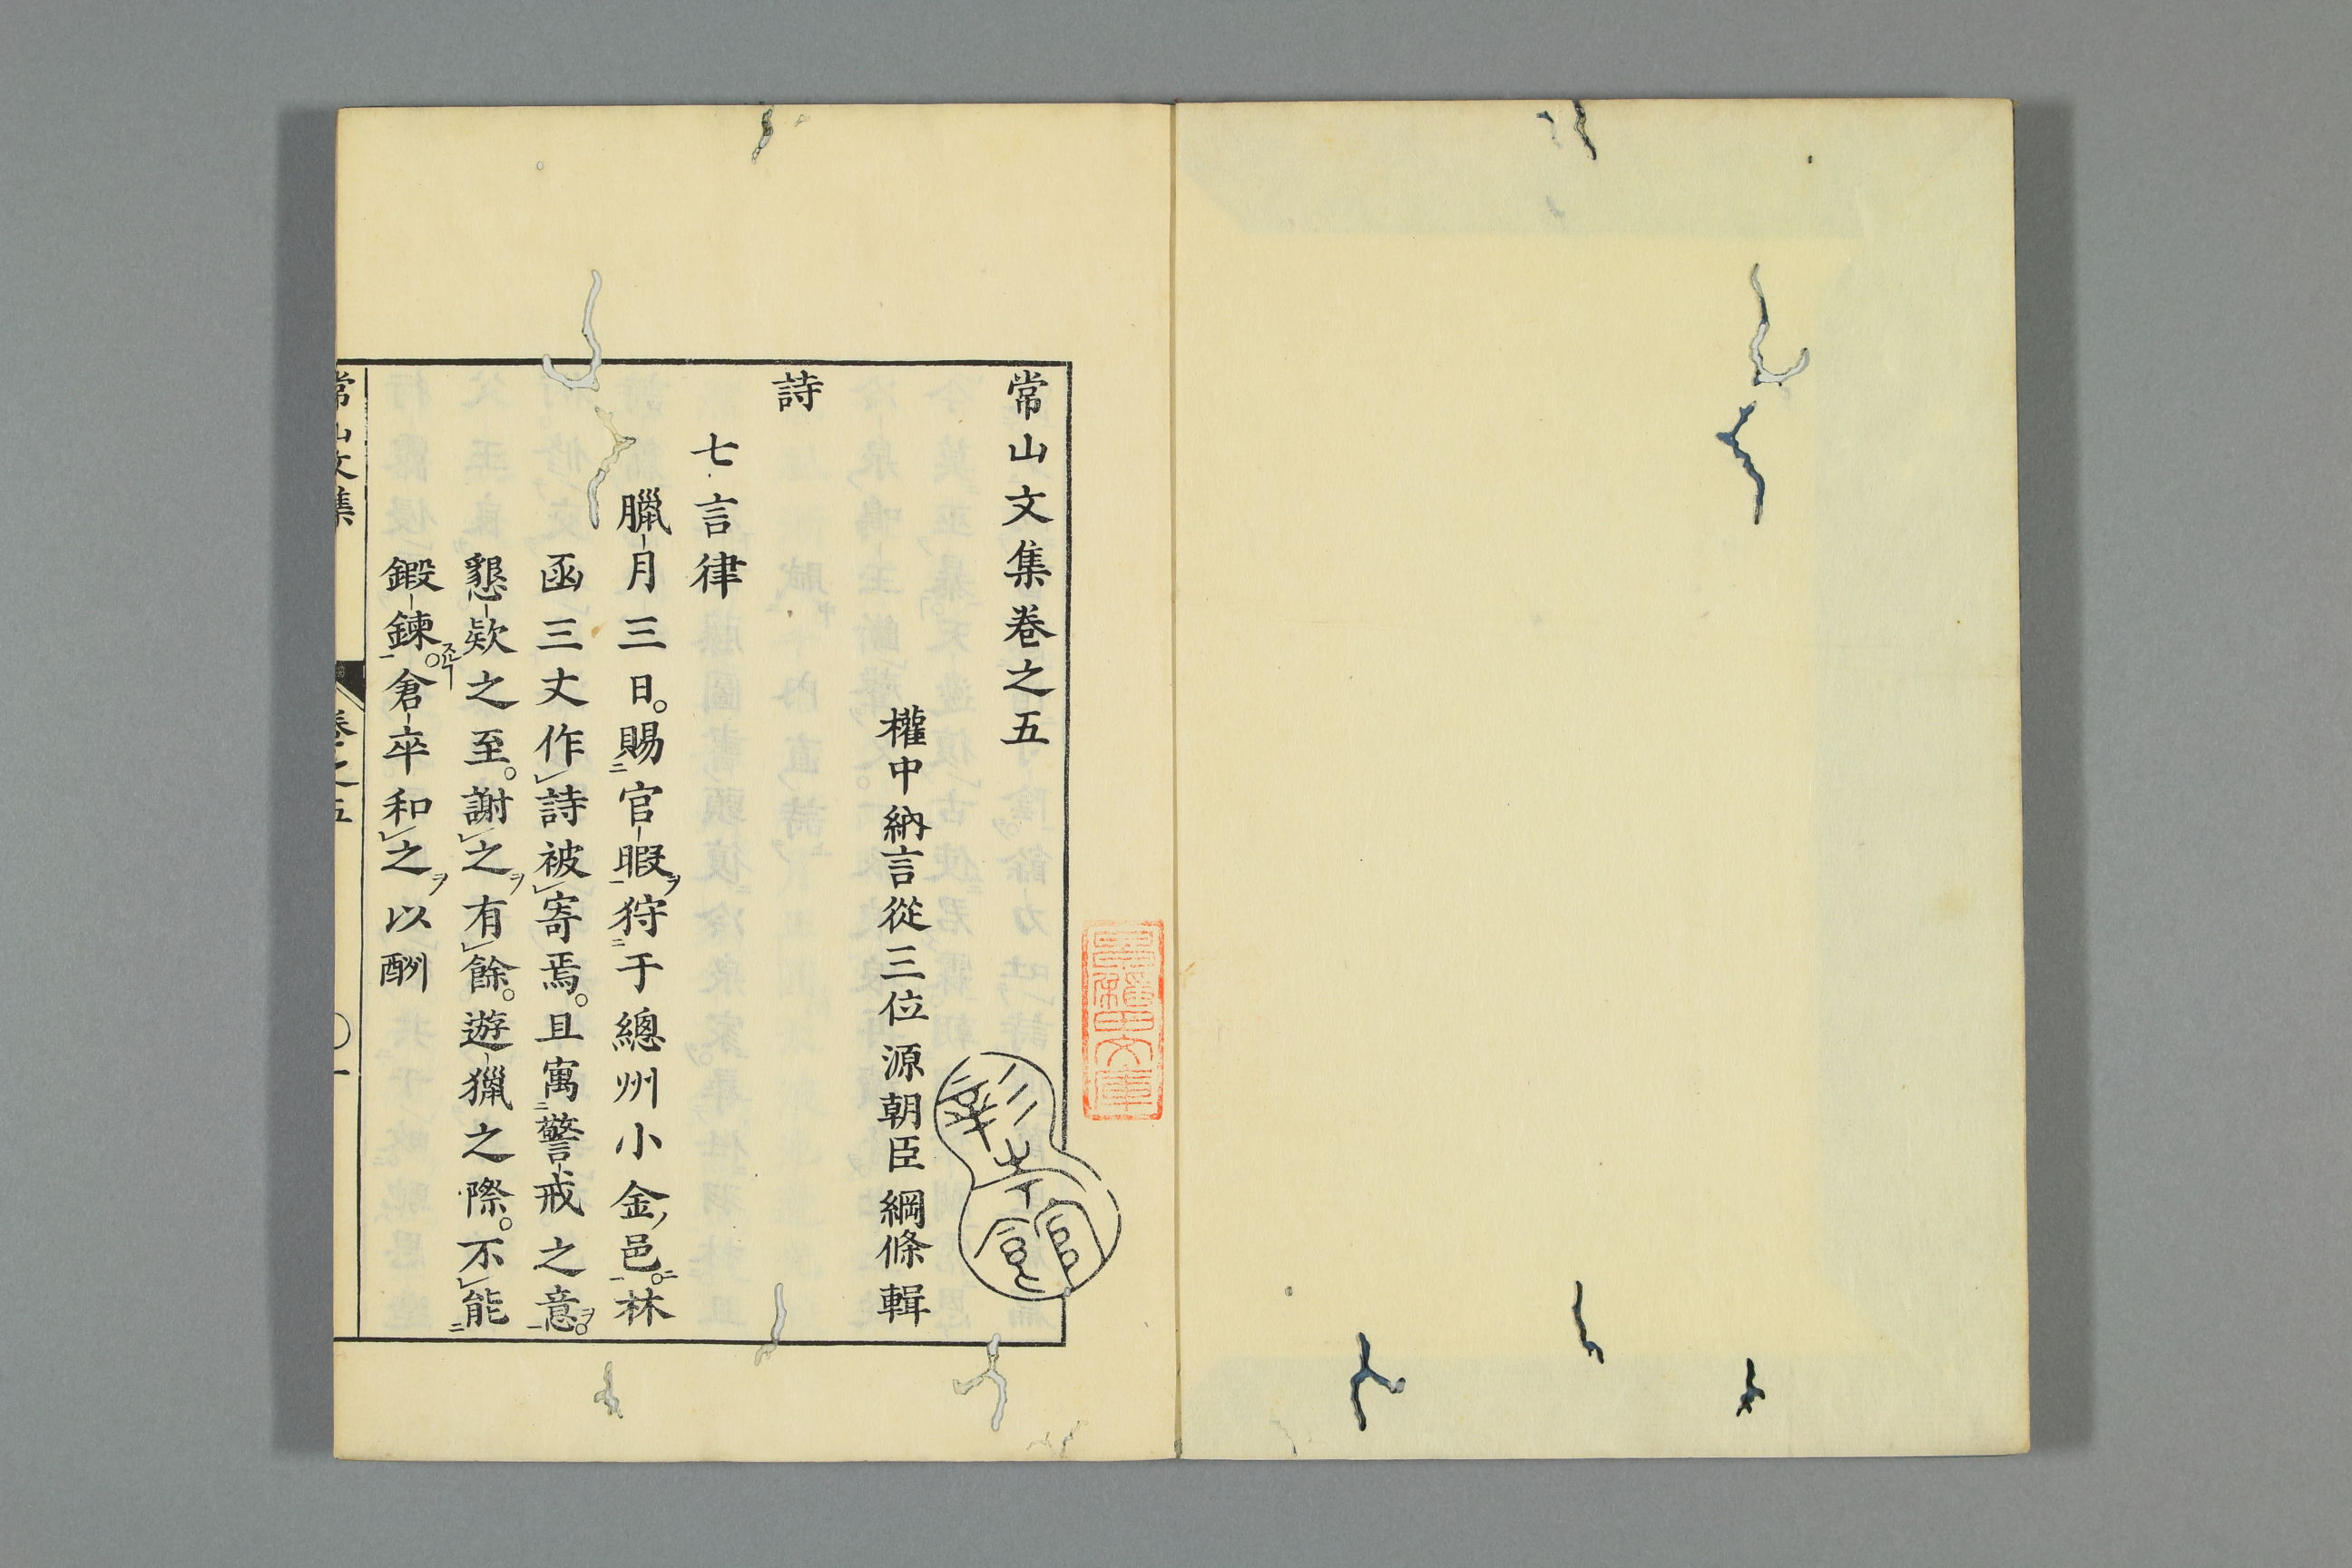 常山文集卷之五
權中納言從三位源朝臣綱條輯
詩
七言律
臘月三日。賜官暇狩于總州小金邑。林
函三丈作詩被寄焉。且寓警戒之意。
懇款之至。謝之有餘。遊獵之際。不能
鍛鍊。倉卒和之以酬
常山文集 卷之五 〇一
彰考館